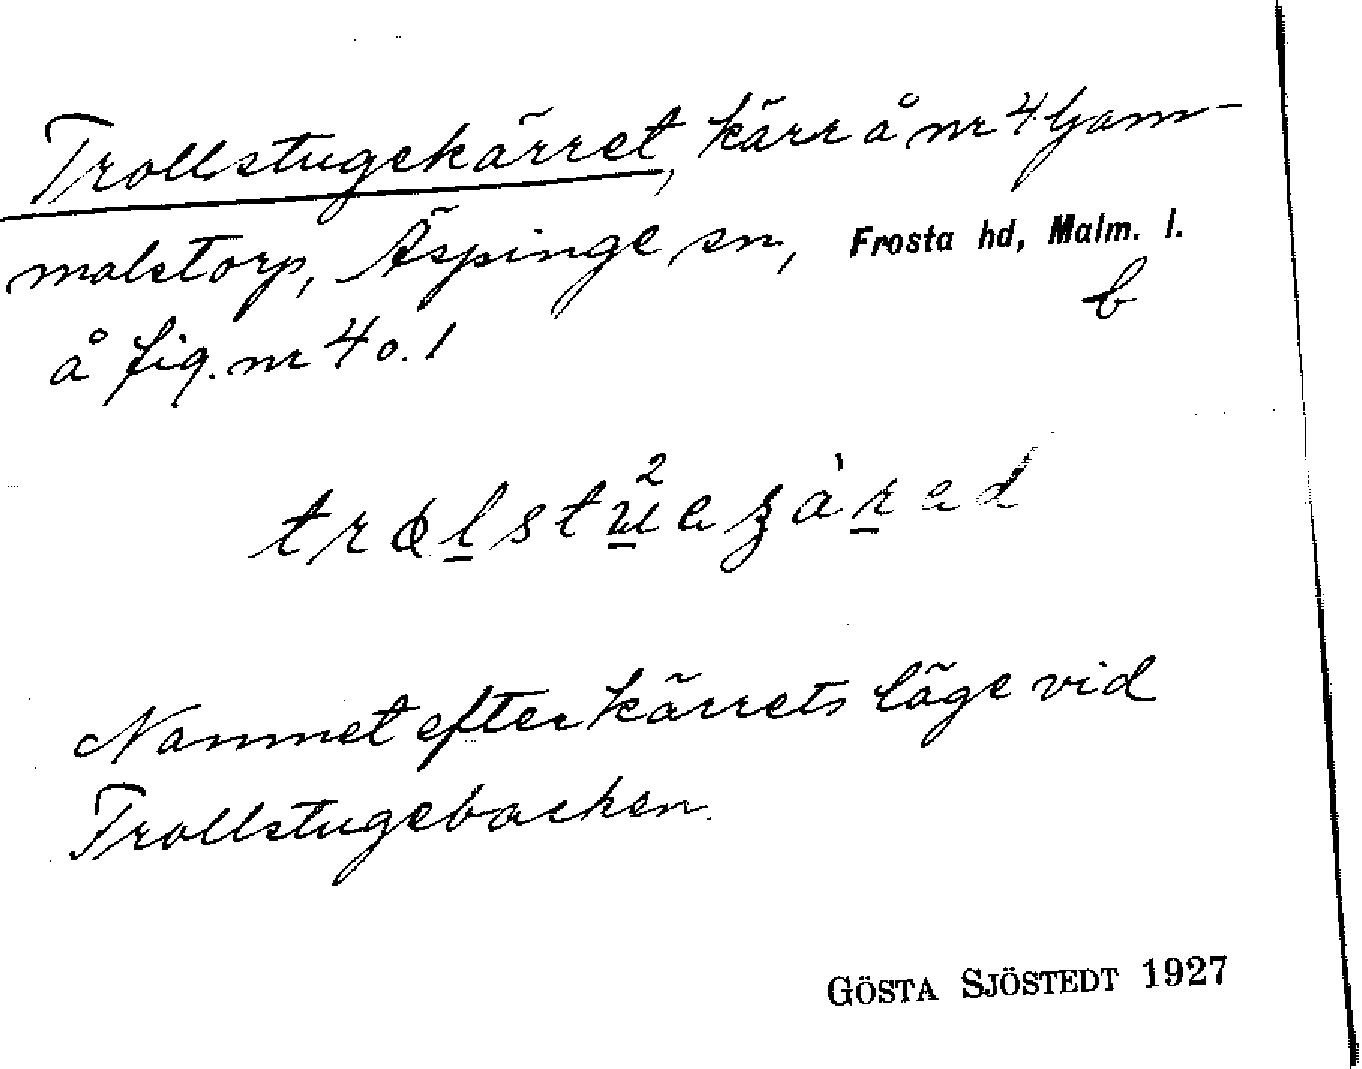 Trollstugekärret, kärr å nr 4 Gam-
malstorp, Äspinge sn, Frosta hd, Malm. l.
b
å fig. nr 4 o. 1
Namnet efter kärrets läge vid
Trollstugebacken.
GÖSTA SJÖSTEDT 1927